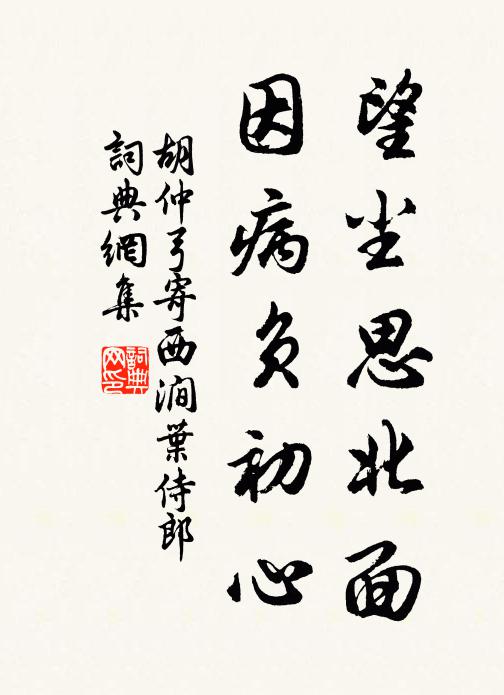 望尘思北面
因病负初心
胡仲弓寄西澗葉侍郎
詞典網集
詞典网印